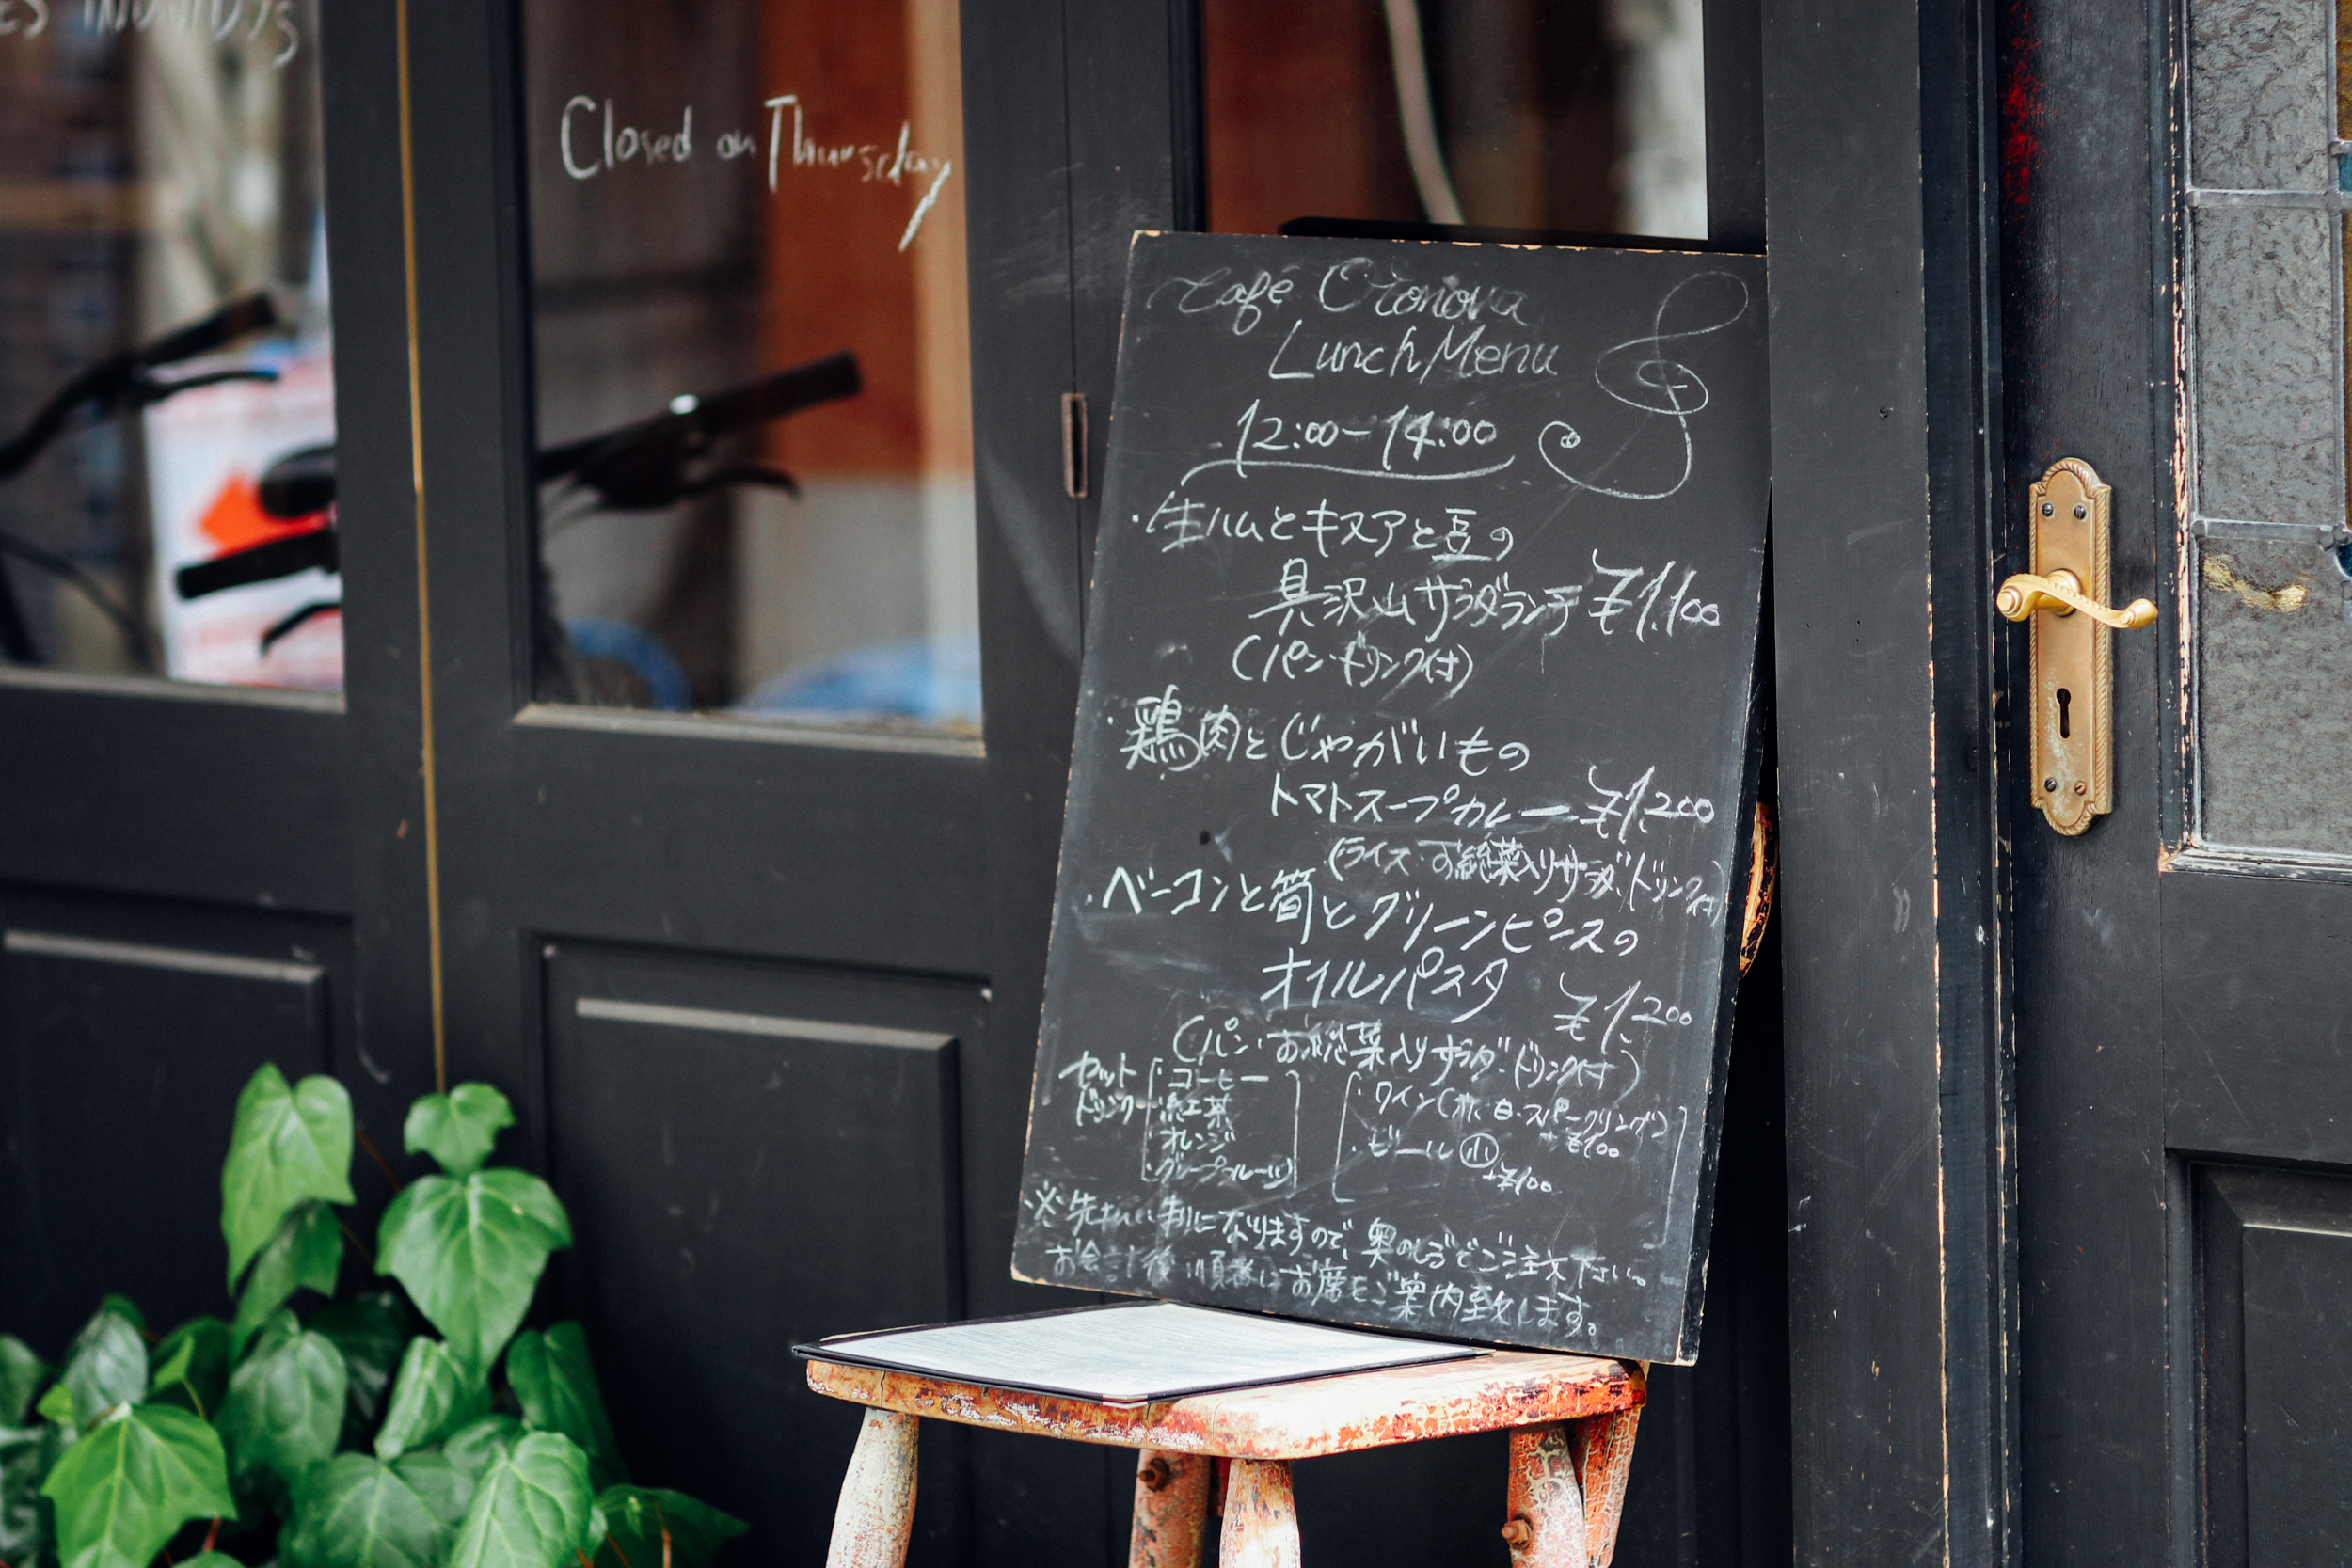 Closed on Thursday
Café Otonova
Lunch Menu
12:00-14:00
・生ハムとキヌアと豆の
具沢山サラダランチ ¥1.100
(パン・ドリンク付)
・鶏肉とじゃがいもの
トマトスープカレー ¥1.200
(ライス・お総菜入りサラダ・ドリンク付)
・ベーコンと筍とグリーンピースの
オイルパスタ ¥1.200
(パン・お総菜入りサラダ・ドリンク付)
セットドリンク
・コーヒー
・紅茶
・オレンジ
・グレープフルーツ
・ワイン(赤・白・スパークリング)
+¥100
・ビール(小)
+¥100
※先払い制になりますので、奥のレジでご注文下さい。
お会計後、順番にお席をご案内致します。